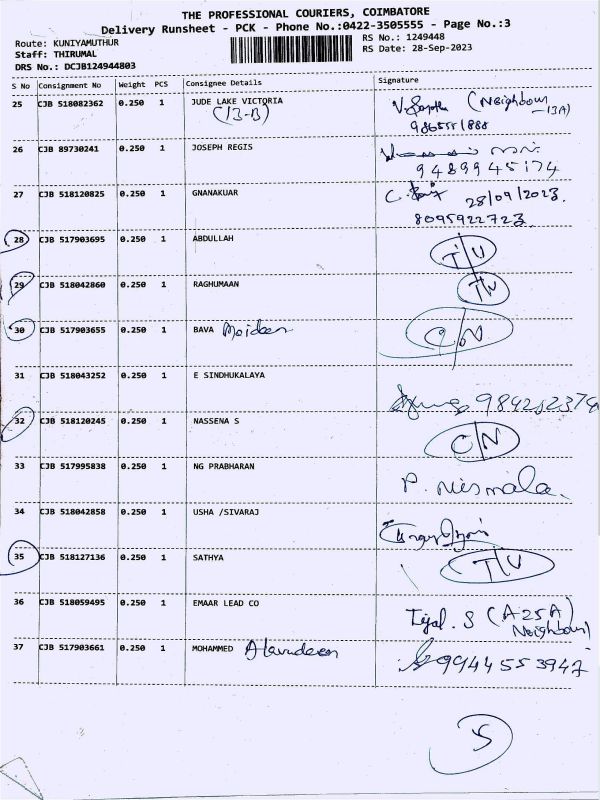 THE PROFESSIONAL COURIERS, COIMBATORE
Delivery Runsheet - PCK - Phone No.:0422-3505555 - Page No.:3
Route: KUNIYAMUTHUR RS No.: 1249448
Staff: THIRUMAL RS Date: 28-Sep-2023
DRS No.: DCJB124944803
S No Consignment No Weight PCS Consignee Details Signature
25 CJB 518082362 0.250 1 JUDE LAKE VICTORIA (Neighbour
(13-B) -13A)
26 CJB 89730241 0.250 1 JOSEPH REGIS
9489945174
27 CJB 518120825 0.250 1 GNANAKUAR 28/09/2023.
8095922723.
28 CJB 517903695 0.250 1 ABDULLAH T/U
29 CJB 518042860 0.250 1 RAGHUMAAN T/U
30 CJB 517903655 0.250 1 BAVA Moideen C/N
31 CJB 518043252 0.250 1 E SINDHUKALAYA
32 CJB 518120245 0.250 1 NASSENA S C/N
33 CJB 517995838 0.250 1 NG PRABHARAN P. Nirmala.
34 CJB 518042858 0.250 1 USHA /SIVARAJ
35 CJB 518127136 0.250 1 SATHYA T/U
36 CJB 518059495 0.250 1 EMAAR LEAD CO Tejal. S (A25A)
Neighbour)
37 CJB 517903661 0.250 1 MOHAMMED Alavudeen 9944553947
5